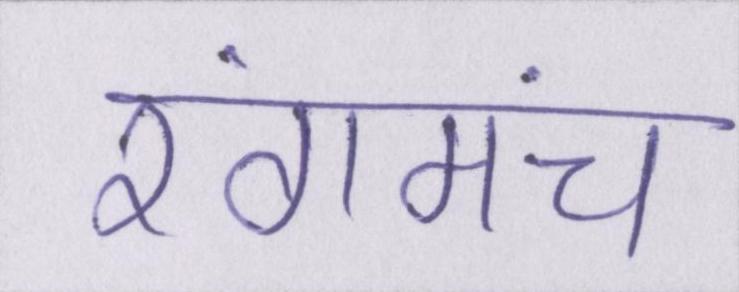 रंगमंच